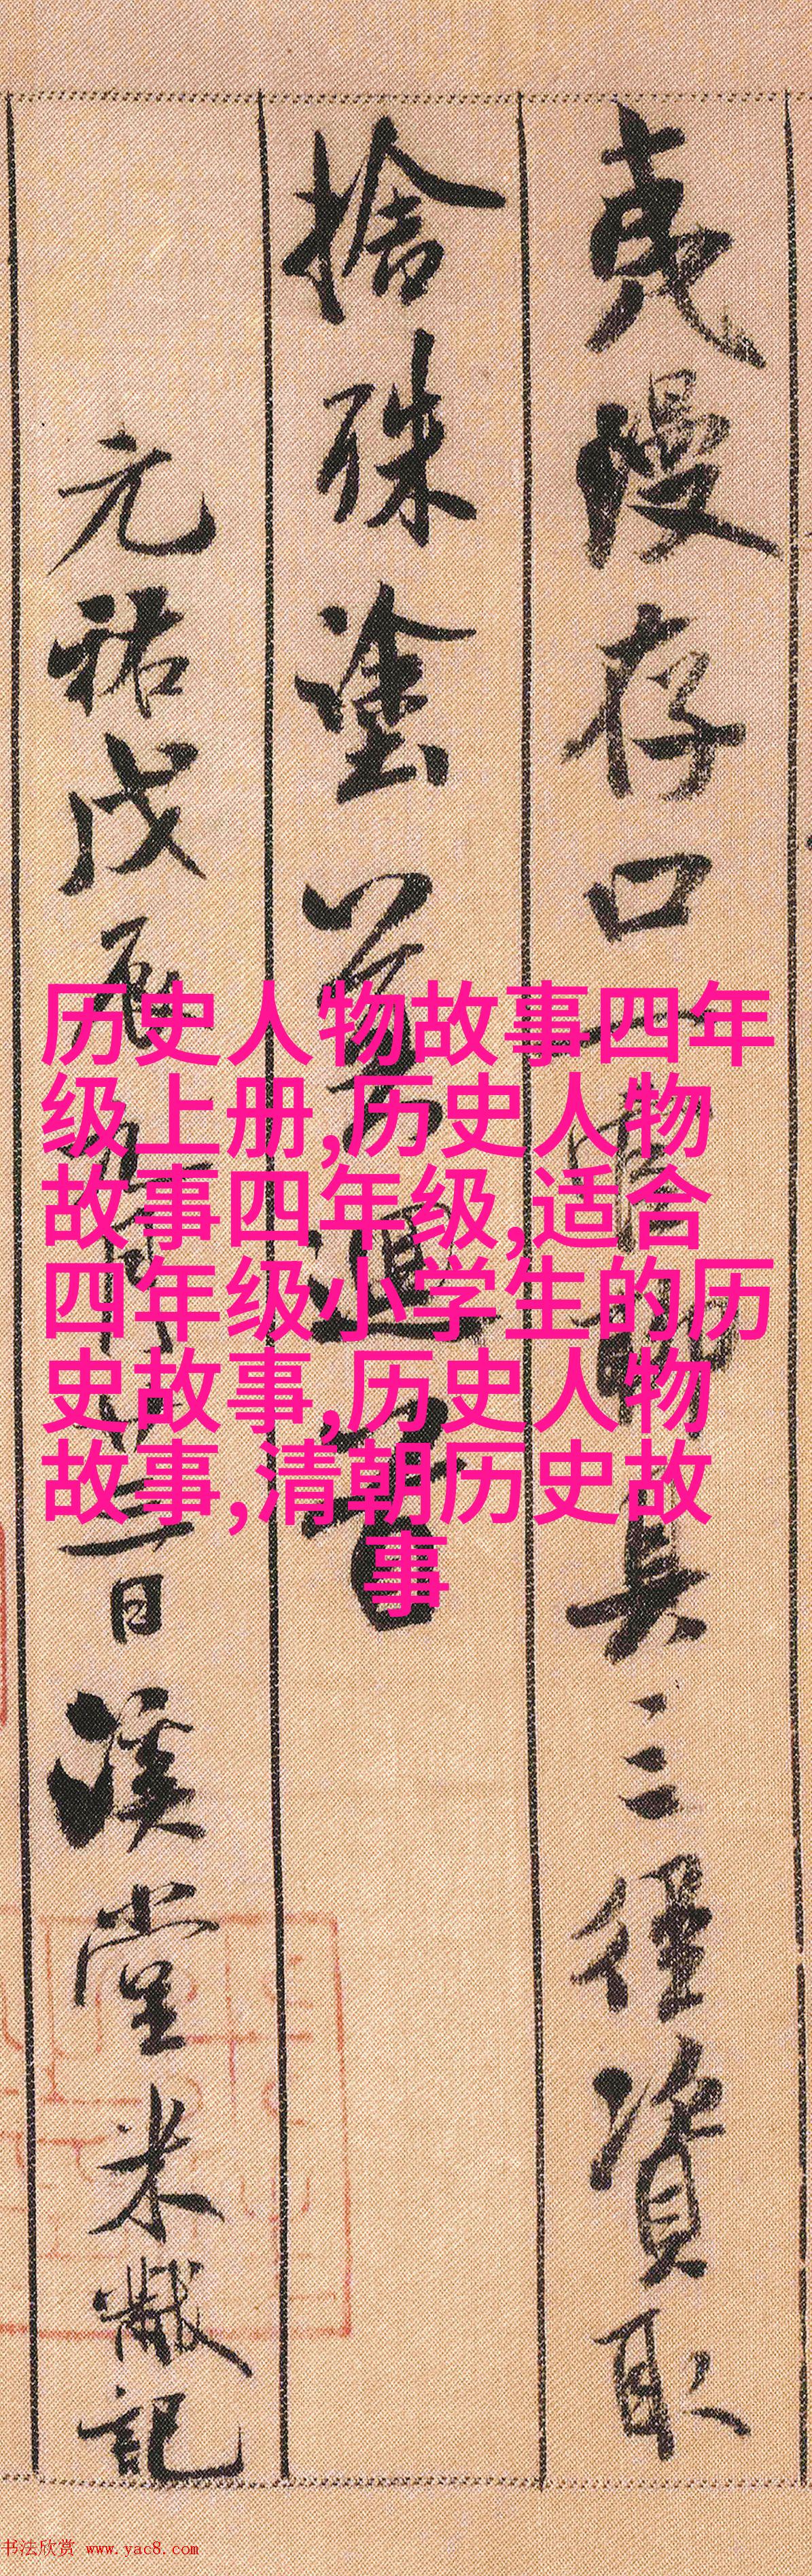 历史人物故事四年
级上册,历史人物
故事四年级,适合
四年级小学生的历
史故事,历史人物
故事,清朝历史故
事
夷漫存口一官聊具三徑資取
捨殊塗莫迴首
元祐戊辰九月廿三日溪堂米黻記
书法欣赏 www.yac8.com